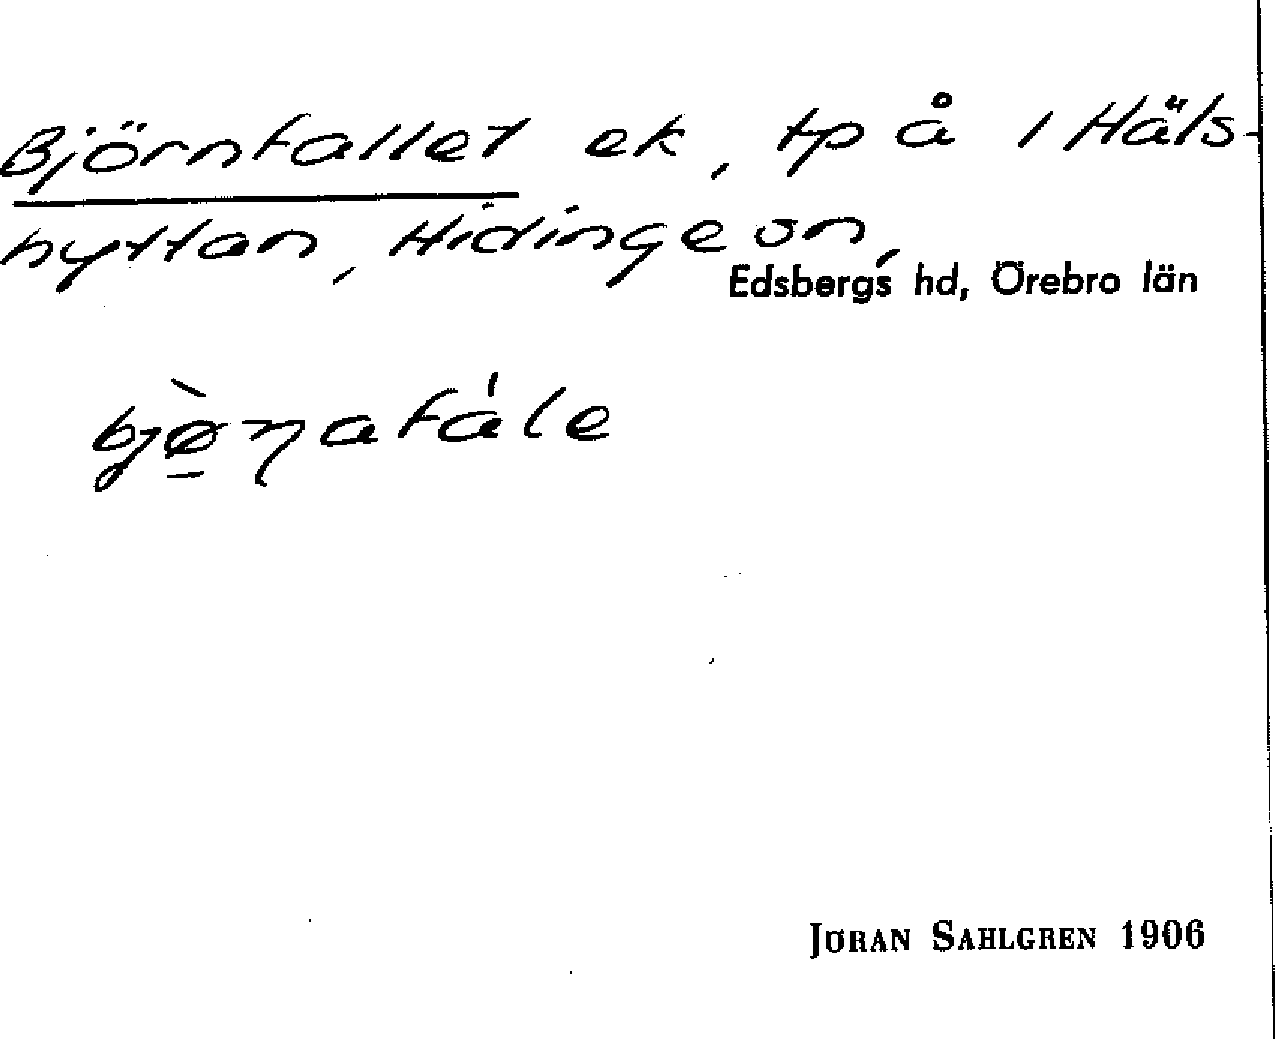 Björnfallet ek, tp å 1 Häls-
hyttan, Hidinge sn,
Edsbergs hd, Örebro län
bjø̱̀ŋafále
JÖRAN SAHLGREN 1906